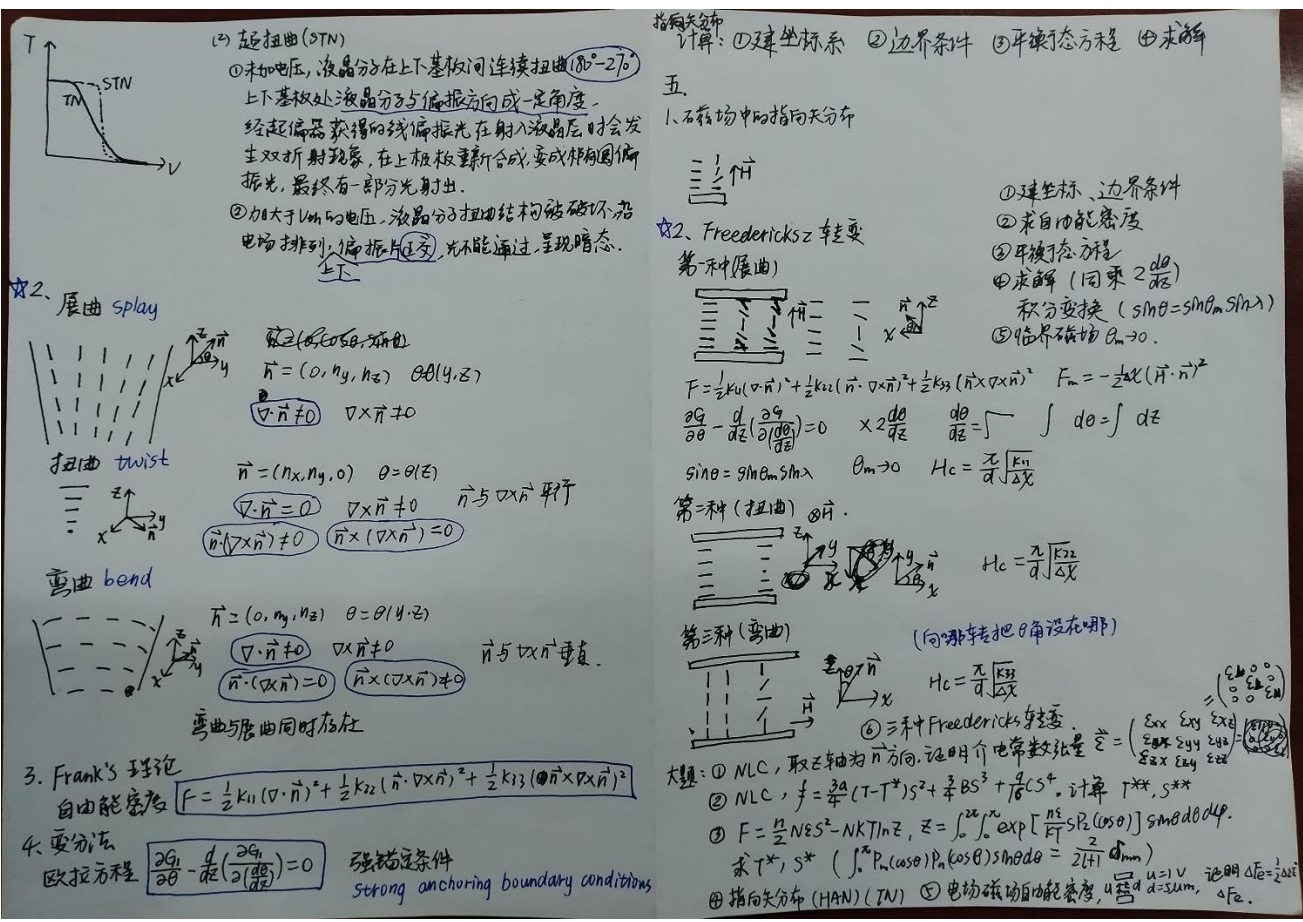 T
STN
TN
V
(2) 超扭曲(STN)
①未加电压,液晶分子在上下基板间连续扭曲180°-270°
上下基板处液晶分子与偏振方向成一定角度.
经起偏器获得的线偏振光在射入液晶层时会发
生双折射现象,在上极板重新合成,变成椭圆偏
振光,最终有一部分光射出.
②加大于Vth的电压,液晶分子扭曲结构被破坏,沿
电场排列,偏振片正交,光不能通过,呈现暗态.
上下
☆2、展曲 splay
z n θ y x
n⃗=(0, ny, nz) θ=θ(y,z)
∇·n⃗≠0 ∇×n⃗≠0
扭曲 twist
z y x n⃗
n⃗=(nx, ny, 0) θ=θ(z)
∇·n⃗=0 ∇×n⃗≠0 n⃗与∇×n⃗平行
n⃗·(∇×n⃗)≠0 n⃗×(∇×n⃗)=0
弯曲 bend
z n⃗ y x
n⃗=(0, ny, nz) θ=θ(y·z)
∇·n⃗≠0 ∇×n⃗≠0 n⃗与∇×n⃗垂直.
n⃗·(∇×n⃗)=0 n⃗×(∇×n⃗)≠0
弯曲与展曲同时存在
3. Frank's 理论
自由能密度 F=½K11(∇·n⃗)²+½K22(n⃗·∇×n⃗)²+½K33(n⃗×∇×n⃗)²
4、变分法
欧拉方程 ∂G/∂θ - d/dz(∂G/∂(dθ/dz))=0 强锚定条件
strong anchoring boundary conditions
指向矢分布
计算:①建坐标系 ②边界条件 ③平衡态方程 ④求解
五.
1、磁场中的指向矢分布
↑H⃗
①建坐标、边界条件
②求自由能密度
③平衡态方程
④求解(同乘2dθ/dz)
积分变换(sinθ=sinθm sinλ)
⑤临界磁场 θm→0.
☆2、Freedericksz 转变
第一种(展曲)
↑H⃗ n⃗ z x θ
F=½K11(∇·n⃗)²+½K22(n⃗·∇×n⃗)²+½K33(n⃗×∇×n⃗)² Fm=-½Δχ(H⃗·n⃗)²
∂G/∂θ - d/dz(∂G/∂(dθ/dz))=0 ×2dθ/dz dθ/dz=√ ∫ dθ=∫ dz
sinθ=sinθm sinλ θm→0 Hc=π/d √(K11/Δχ)
第二种(扭曲) ⊗H⃗.
z y x y n⃗ θ x
Hc=π/d √(K22/Δχ)
第三种(弯曲) (向哪转把θ角设在哪)
H⃗ z θ n⃗ x
Hc=π/d √(K33/Δχ)
⑥三种Freedericks转变.
大题:①NLC,取z轴为n⃗方向,证明介电常数张量 ε⃗=(εxx εxy εxz εyx εyy εyz εzx εzy εzz)
②NLC, f=3a/4(T-T*)S²+¾BS³+9/16CS⁴.计算 T**, S**
③F=n/2 NεS²-NKTlnZ, Z=∫₀²π∫₀π exp[nε/KT SP₂(cosθ)]sinθdθdφ.
求T*, S* (∫₀π Pn(cosθ)Pn(cosθ)sinθdθ=2/(2l+1) δmn)
④指向矢分布(HAN)(TN) ⑤电场磁场自由能密度, u d u=1V d=5um, 证明ΔFe=½
ΔFe.